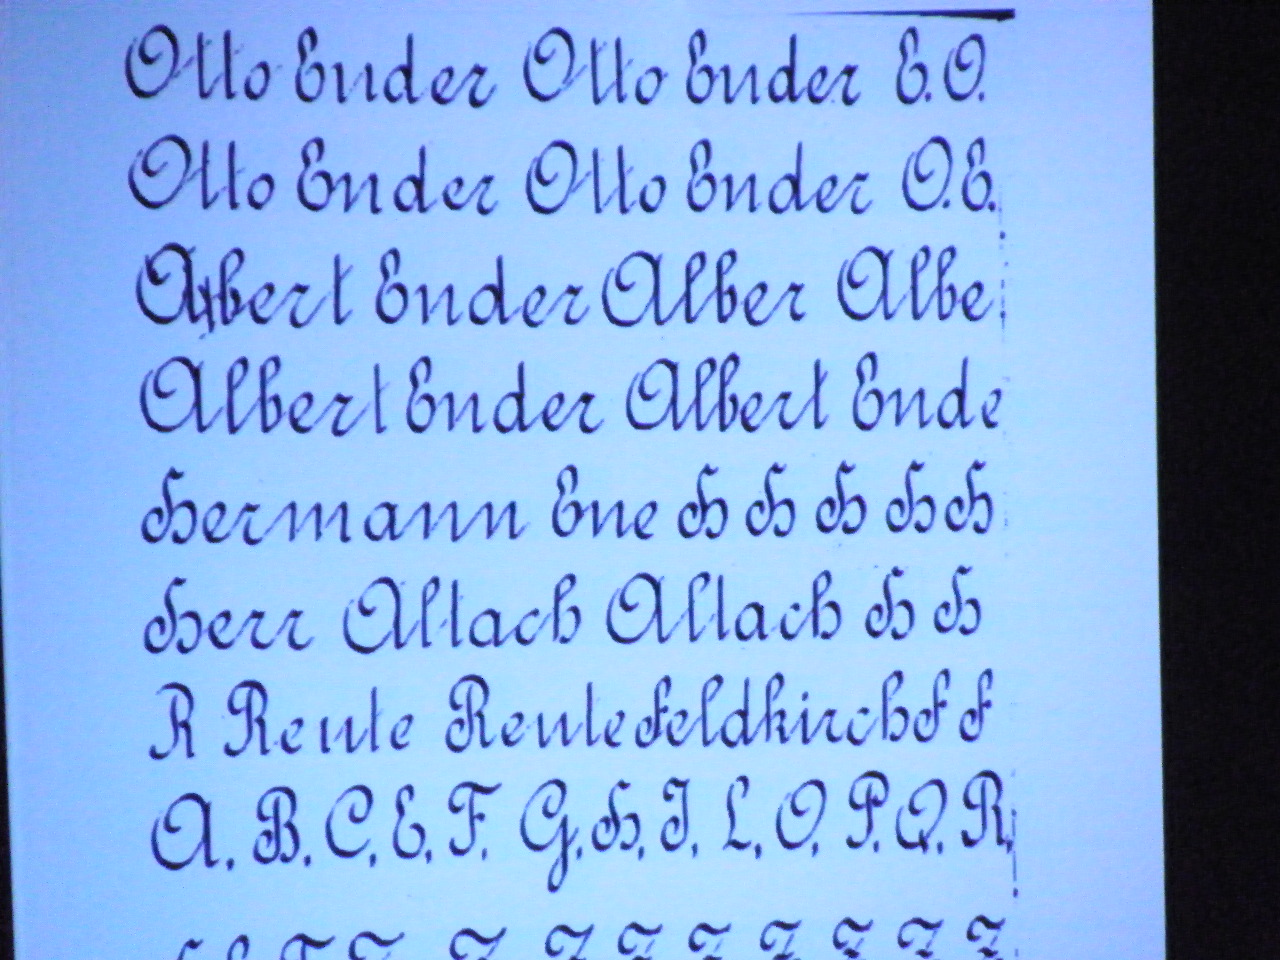 Otto Ender Otto Ender E. O.
Otto Ender Otto Ender O. E.
Albert Ender Alber Albe
Albert Ender Albert Ende
Hermann Ene H H H H H
Herr Altach Altach H H
R Reute Reute Feldkirch F F
A. B. C. E. F. G. H. I. L. O. P. Q. R.